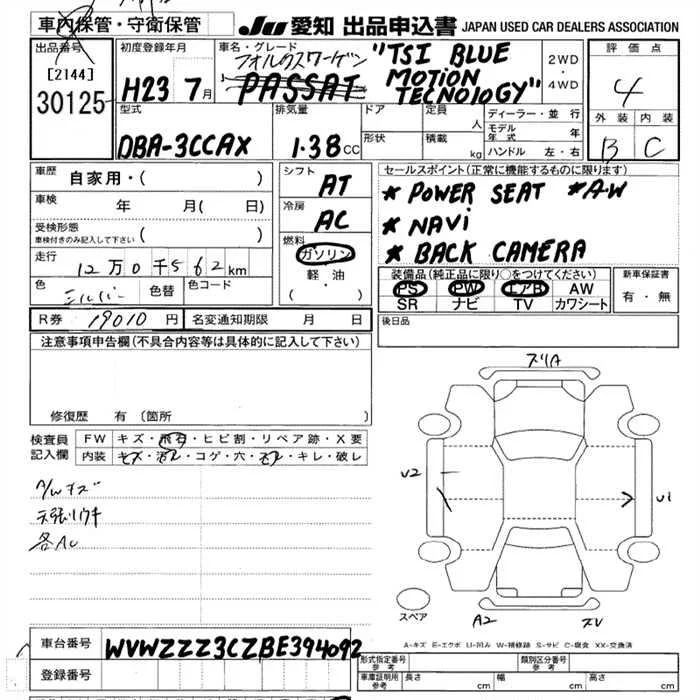 車内保管・守衛保管
JU 愛知 出品申込書 JAPAN USED CAR DEALERS ASSOCIATION
出品番号
[2144]
30125
初度登録年月
H23 7月
車名・グレード
フォルクスワーゲン
PASSAT
"TSI BLUE
MOTION
TECNOlOGY"
2WD
・
4WD
評価点
4
外装 内装
B C
型式
DBA-3CCAX
排気量
1.38cc
ドア
形状
定員
人
積載
kg
ディーラー・並行
モデル年式 年
ハンドル 左・右
車歴
自家用・( )
車検
年 月( 日)
受検形態
車検付きのみ記入して下さい ( )
走行
12万0千562km
色
シルバー
色替
色コード
シフト
AT
冷房
AC
燃料
ガソリン
軽油
( ・ )
セールスポイント(正常に機能するものに限ります)
* POWER SEAT *A-W
* NAVi
* BACK CAMERA
装備品(純正品に限り○をつけてください)
PS PW エアB AW
SR ナビ TV カワシート
新車保証書
有・無
R券 19010円
名変通知期限 月 日
後日品
注意事項申告欄(不具合内容等は具体的に記入して下さい)
修復歴 有(箇所 )
検査員
記入欄
FW キズ・飛石・ヒビ割・リペア跡・X要
内装 キズ・汚レ・コゲ・穴・スレ・キレ・破レ
A/Wキズ
天張リウキ
各AU
ズリA
U2
U1
スペア
A2
ズU
A-キズ E-エクボ U-凹み W-補修跡 S-サビ C-腐食 XX-交換済
車台番号
WVWZZZ3CZBE394092
登録番号
形式指定番号
参考
類別区分番号
参考
車庫証明用
参考
長さ cm
幅 cm
高さ cm